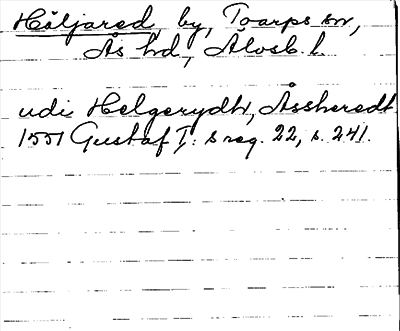 Häljared by, Toarps sn,
Ås hd, Älvsb. l.
udi Helgerydh, Åssheredt
1551 Gustaf I: s reg. 22, s. 241.